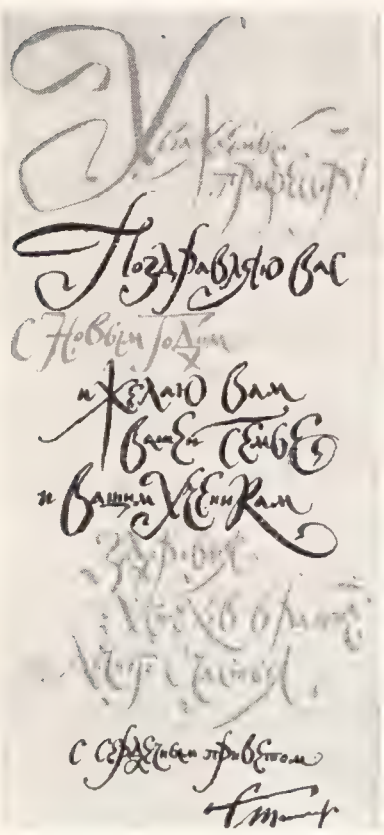 Уважаемый
профессор!
Поздравляю вас
с Новым Годом
и желаю вам
вашей семье
и вашим ученикам
здоровья
успехов в работе
счастья
с сердечным приветом